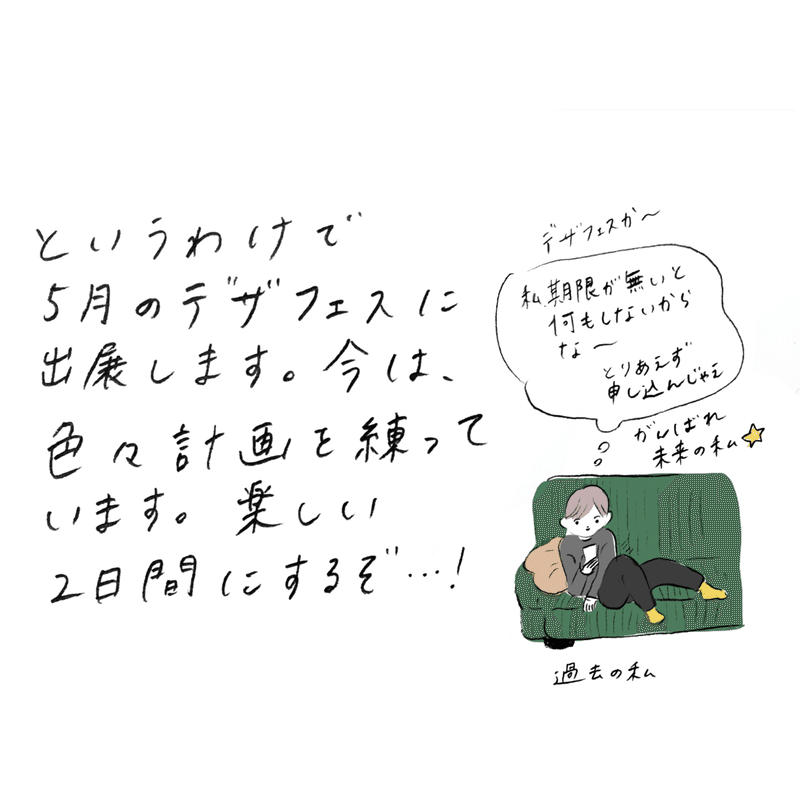 というわけで
5月のデザフェスに
出展します。今は、
色々計画を練って
います。楽しい
2日間にするぞ…!
デザフェスか〜
私、期限が無いと
何もしないから
な〜
とりあえず
申し込んじゃえ
がんばれ
未来の私
過去の私